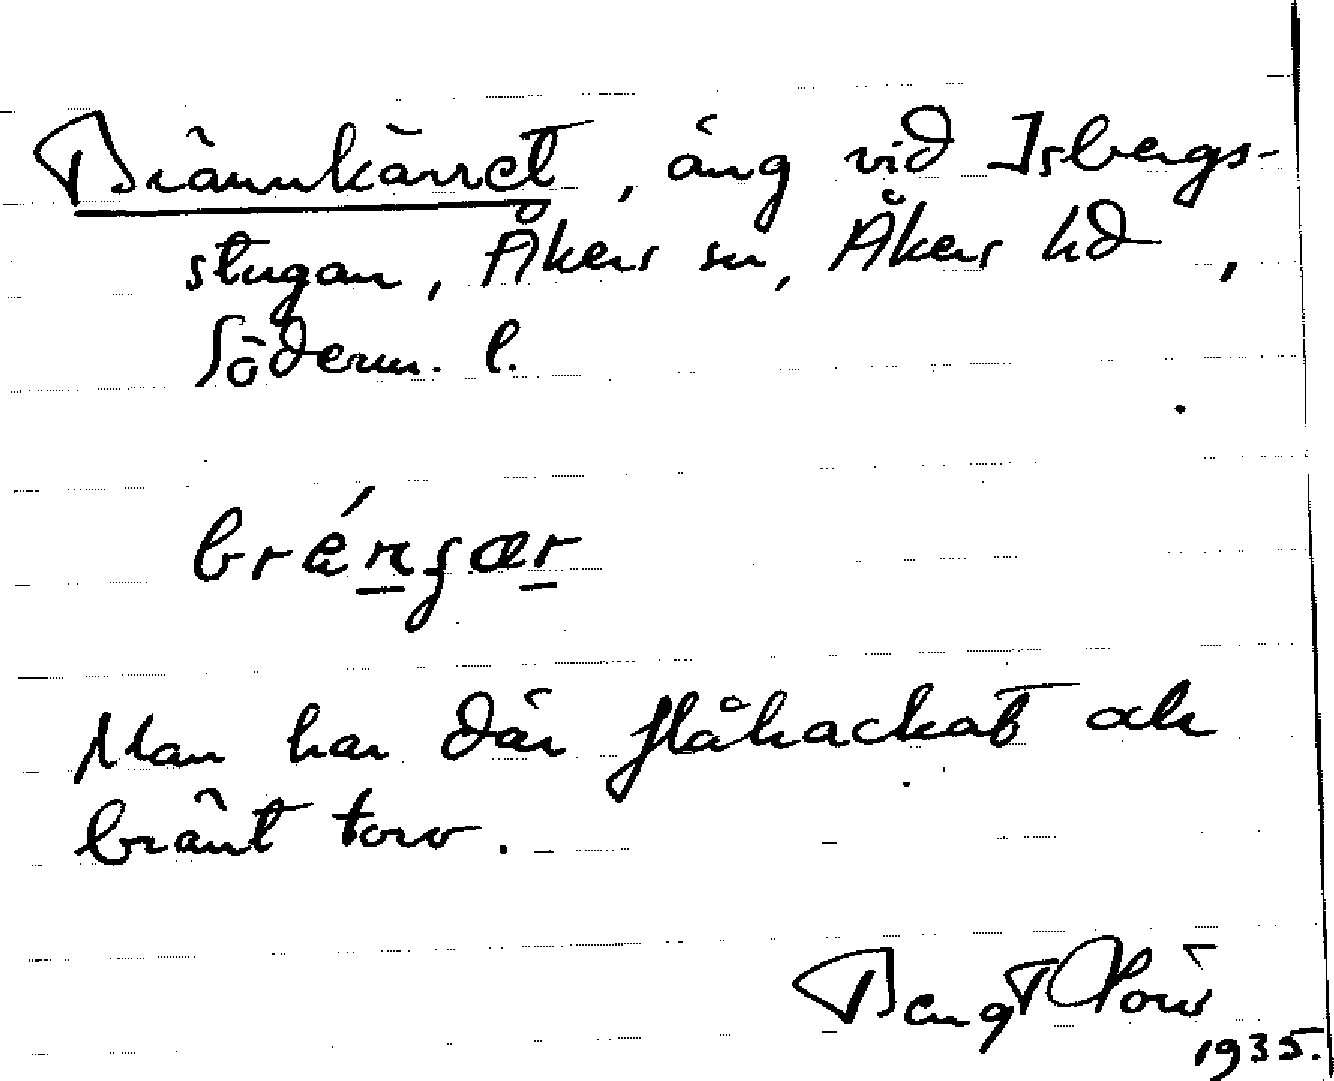 Brännkärret, äng vid Isbergs-
stugan, Åkers sn, Åkers hd,
Söderm. l.
Man har där flåhackat och
bränt torv.
Bengt
1935.